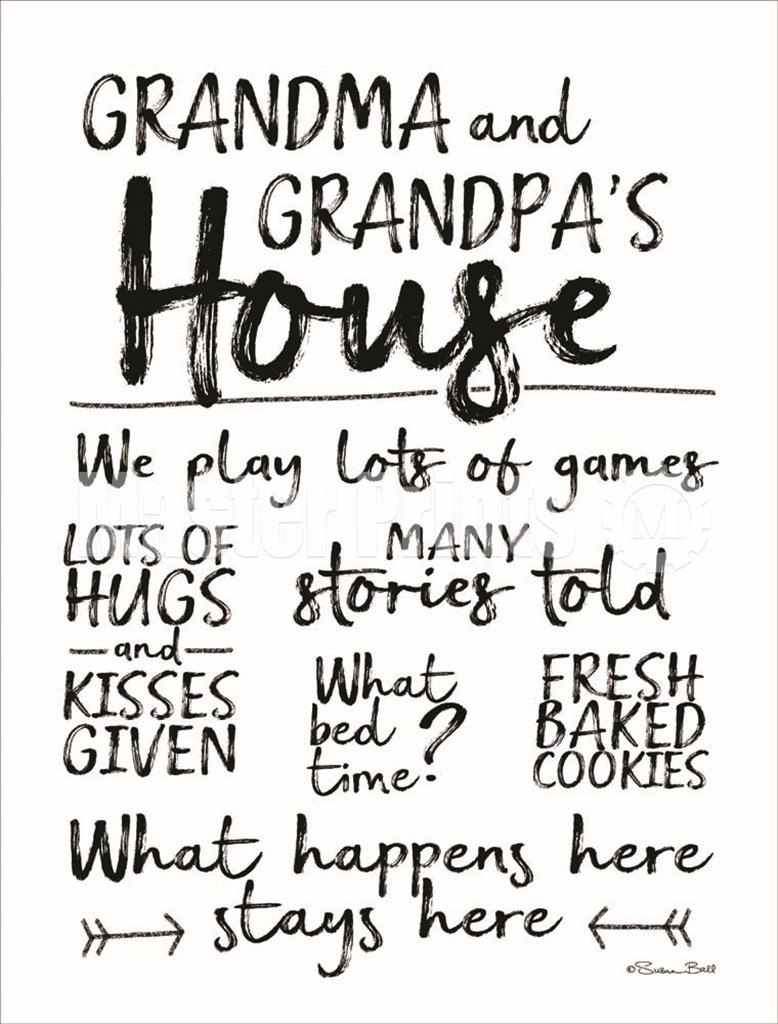 GRANDMA and
GRANDPA'S
House
We play lots of games
Master Prints M
LOTS OF
HUGS
and
KISSES
GIVEN
MANY
stories told
What
bed
time?
FRESH
BAKED
COOKIES
What happens here
stays here
©Susan Ball